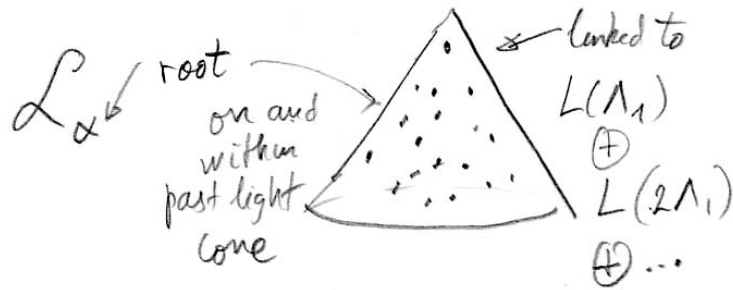 ℒα
root
on and
within
past light
cone
linked to
L(Λ₁)
⊕
L(2Λ₁)
⊕ ...